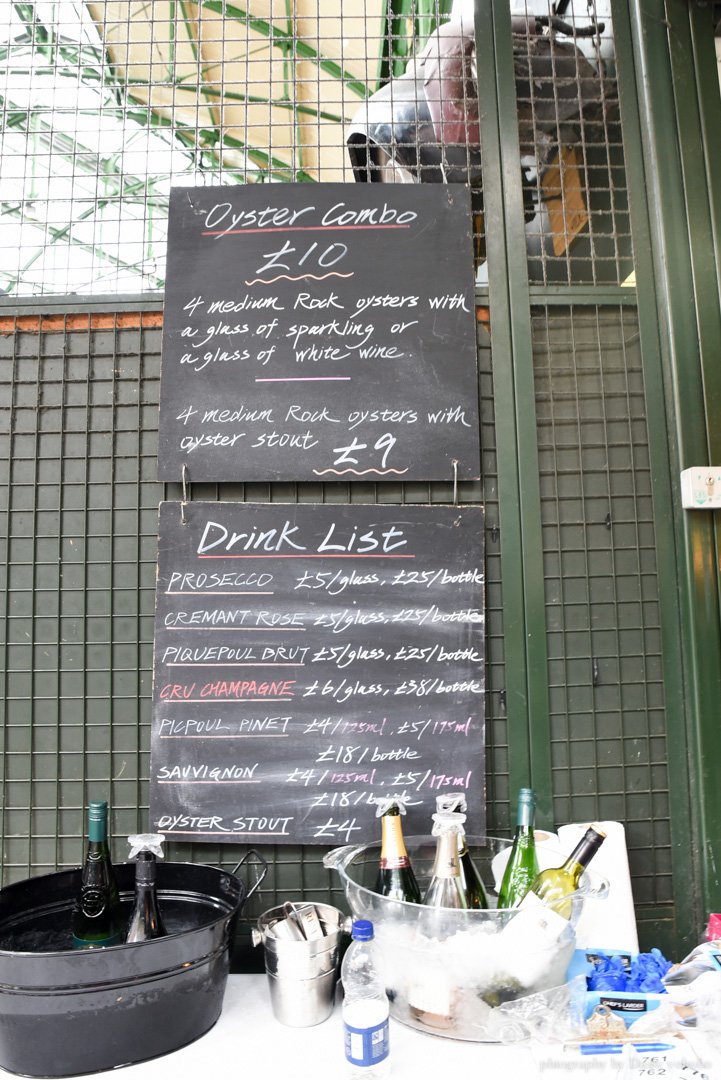 Oyster Combo
£10
4 medium Rock oysters with
a glass of sparkling or
a glass of white wine.
4 medium Rock oysters with
oyster stout £9
Drink List
PROSECCO £5/glass, £25/bottle
CREMANT ROSE £5/glass, £25/bottle
PIQUEPOUL BRUT £5/glass, £25/bottle
CRU CHAMPAGNE £6/glass, £38/bottle
PICPOUL PINET £4/125ml, £5/175ml
£18/bottle
SAUVIGNON £4/125ml, £5/175ml
£18/bottle
OYSTER STOUT £4
CHEF'S LARDER
761
762
photography by